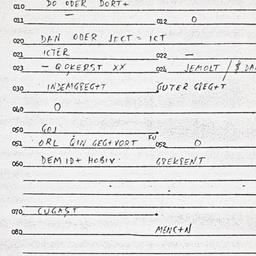 010 DO ODER DORT+
011 — 012 O
020 DAN ODER JECT = ICT
021 ICTER 022 —
023 - QOKERST XX 024 JEMOLT / $ DA
030 INDEMGBEG+T GUTER GBEG+T
040 O
050 GOJ
051 ORL GIN GEG+VORT 052 O
060 DEMID+ HOBIV. GBEKSENT
070 CUGAST
080 MENC+N